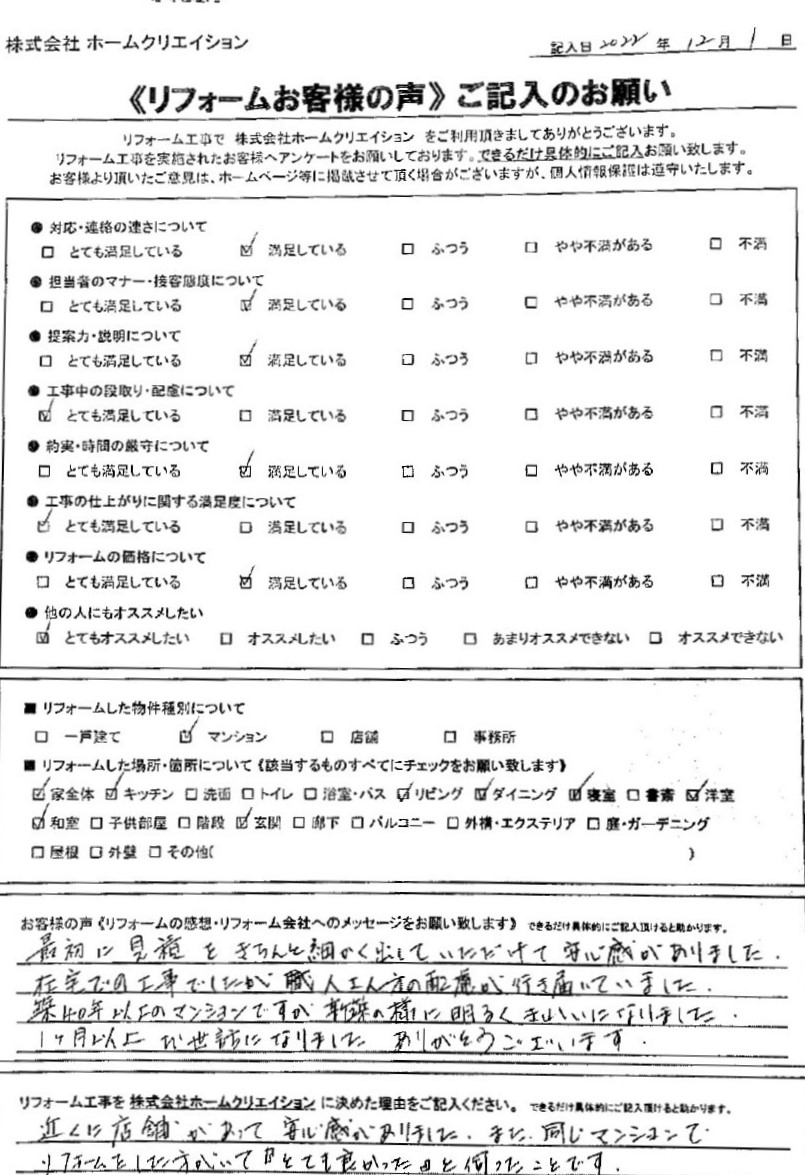 株式会社 ホームクリエイション
記入日 2022 年 12月 1 日
《リフォームお客様の声》ご記入のお願い
リフォーム工事で 株式会社ホームクリエイション をご利用頂きましてありがとうございます。
リフォーム工事を実施されたお客様へアンケートをお願いしております。できるだけ具体的にご記入お願い致します。
お客様より頂いたご意見は、ホームページ等に掲載させて頂く場合がございますが、個人情報保護は遵守いたします。
● 対応・連絡の速さについて
□ とても満足している ☑ 満足している □ ふつう □ やや不満がある □ 不満
● 担当者のマナー・接客態度について
□ とても満足している ☑ 満足している □ ふつう □ やや不満がある □ 不満
● 提案力・説明について
□ とても満足している ☑ 満足している □ ふつう □ やや不満がある □ 不満
● 工事中の段取り・配慮について
☑ とても満足している □ 満足している □ ふつう □ やや不満がある □ 不満
● 約束・時間の厳守について
□ とても満足している ☑ 満足している □ ふつう □ やや不満がある □ 不満
● 工事の仕上がりに関する満足度について
☑ とても満足している □ 満足している □ ふつう □ やや不満がある □ 不満
● リフォームの価格について
□ とても満足している ☑ 満足している □ ふつう □ やや不満がある □ 不満
● 他の人にもオススメしたい
☑ とてもオススメしたい □ オススメしたい □ ふつう □ あまりオススメできない □ オススメできない
■ リフォームした物件種別について
□ 一戸建て ☑ マンション □ 店舗 □ 事務所
■ リフォームした場所・箇所について《該当するものすべてにチェックをお願い致します》
☑家全体 ☑キッチン □洗面 □トイレ □浴室・バス ☑リビング ☑ダイニング ☑寝室 □書斎 ☑洋室
☑和室 □子供部屋 □階段 ☑玄関 □廊下 □バルコニー □外構・エクステリア □庭・ガーデニング
□屋根 □外壁 □その他( )
お客様の声《リフォームの感想・リフォーム会社へのメッセージをお願い致します》 できるだけ具体的にご記入頂けると助かります。
最初に見積をきちんと細かく出していただけて安心感がありました.
在宅での工事でしたが職人さん方の配慮が行き届いていました.
築40年以上のマンションですが新築の様に明るくきれいになりました.
1ヶ月以上お世話になりました ありがとうございます.
リフォーム工事を 株式会社ホームクリエイション に決めた理由をご記入ください。 できるだけ具体的にご記入頂けると助かります。
近くに店舗があって安心感がありました. また、同じマンションで
リフォームをした方がいて『とても良かった』と伺ったことです